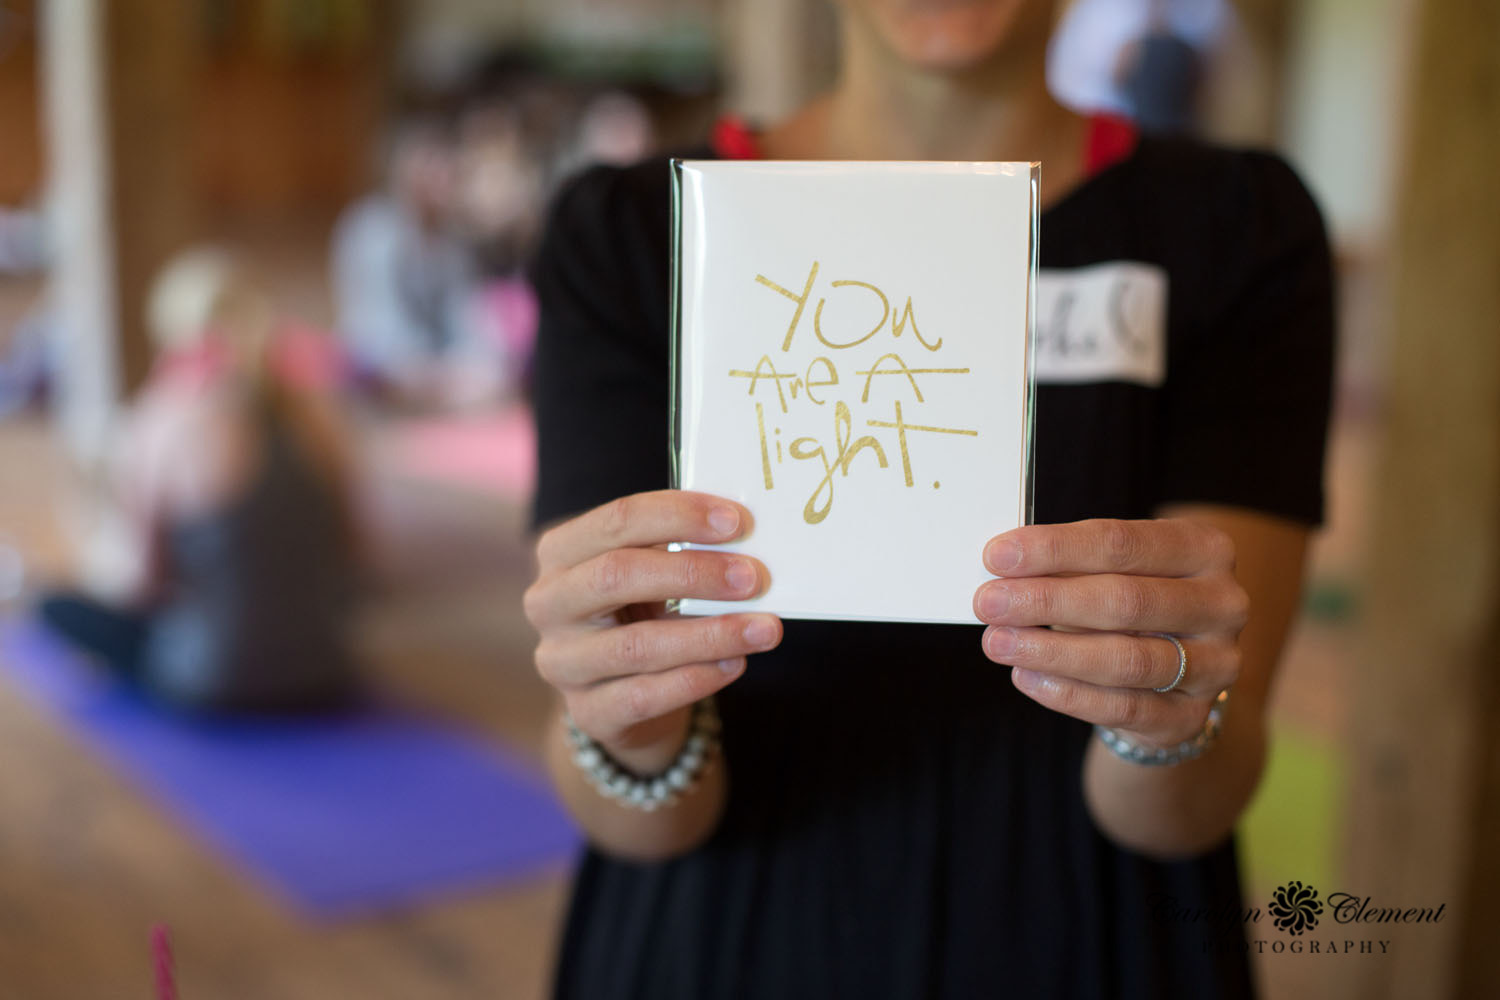 You
Are A
light.
Carolyn Clement
PHOTOGRAPHY